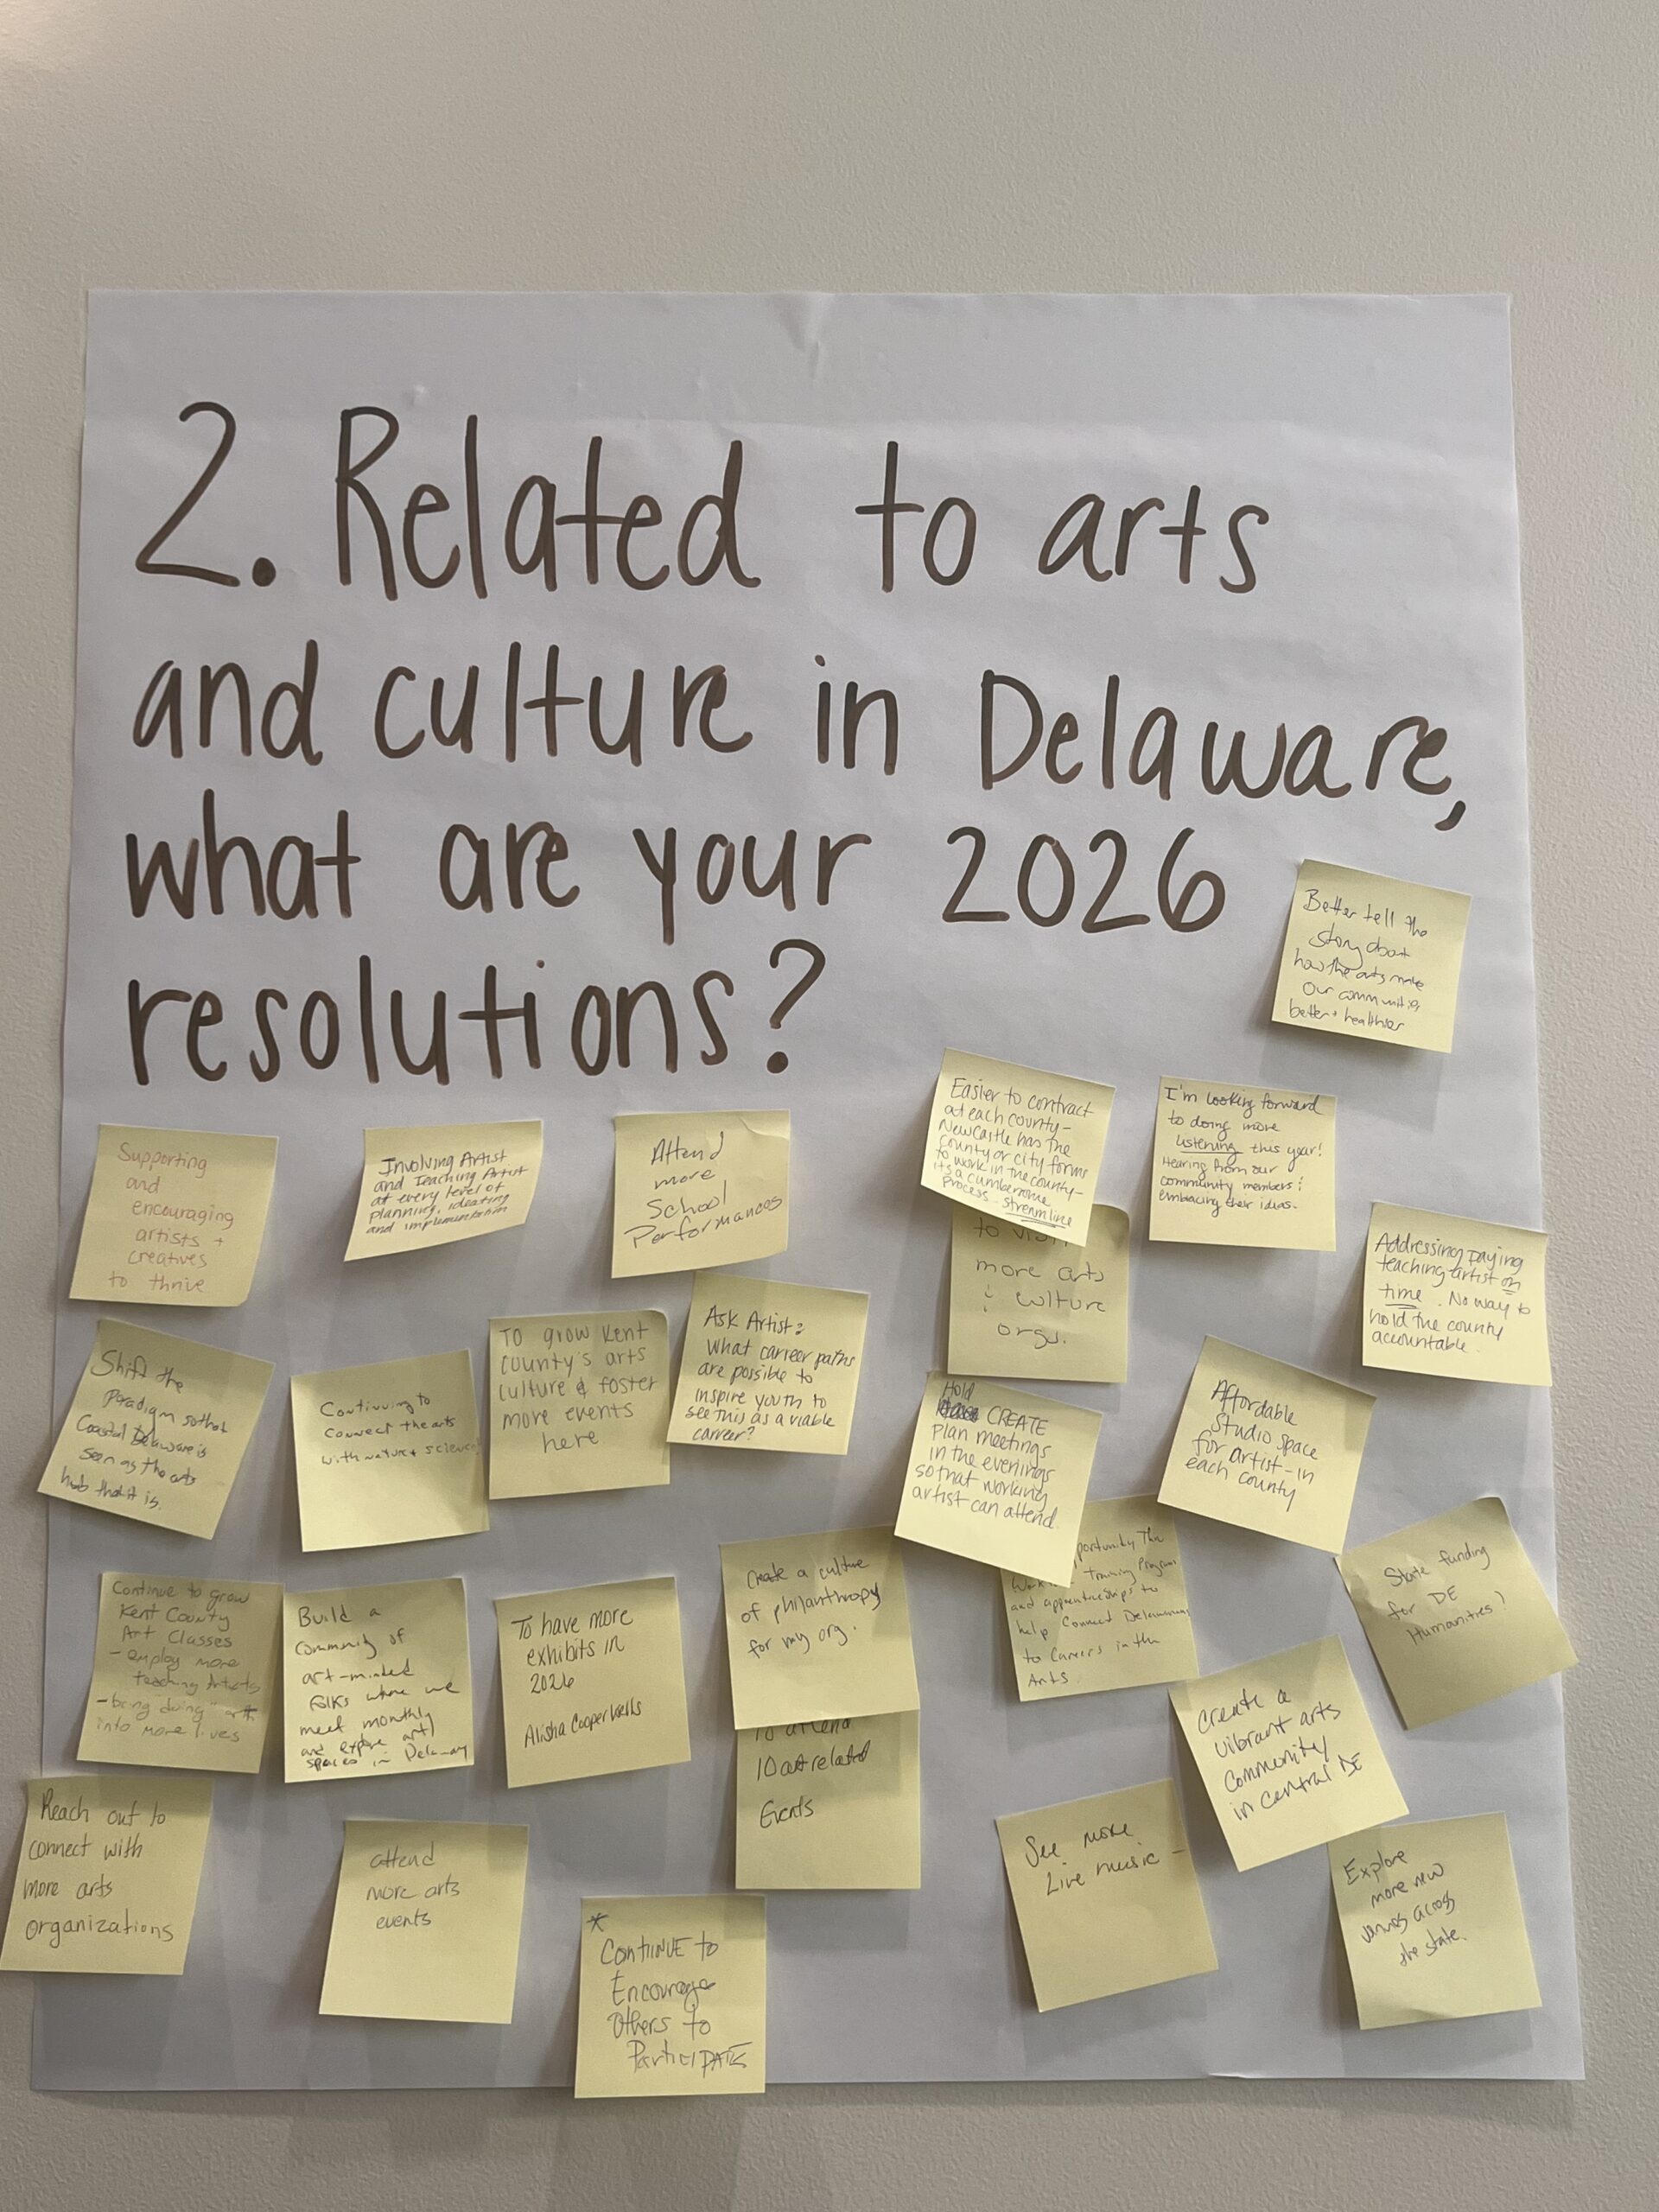 2. Related to arts
and culture in Delaware,
what are your 2026
resolutions?
Better tell the
story about
how the arts make
our communities
better + healthier
Easier to contract
at each county-
Newcastle has the
county or city forms
to work in the county-
its a cumbersome
process - streamline
I'm looking forward
to doing more
listening this year!
Hearing from our
community members &
embracing their ideas.
Supporting
and
encouraging
artists +
creatives
to thrive
Involving Artist
and Teaching Artist
at every level of
planning, ideating
and implementation
Attend
more
School
Performances
to visit
more arts
& culture
orgs.
Addressing paying
teaching artist on
time. No way to
hold the county
accountable.
Shift the
paradigm so that
Coastal Delaware is
seen as the arts
hub that it is.
Continuing to
connect the arts
with nature & science!
To grow Kent
County's arts
culture & foster
more events
here.
Ask Artist:
What career paths
are possible to
inspire youth to
see this as a viable
career?
Hold
CREATE
plan meetings
in the evenings
so that working
artist can attend.
Affordable
Studio space
for artist-in
each county
Continue to grow
Kent County
Art Classes
- employ more
teaching Artists
- bring "doing" art
into more lives
Build a
community of
art-minded
folks where we
meet monthly
and explore art
spaces in Delaway
To have more
exhibits in
2026
Alisha Cooper Wells
Create a culture
of philanthropy
for my org.
portunity Thr
Training Program
and apprenticeships to
help Connect Delawareans
to Careers in the
Arts.
State funding
for DE
Humanities?
Create a
vibrant arts
community
in central DE
To attend
10 art related
Events
Reach out to
connect with
more arts
organizations
attend
more arts
events
* Continue to
Encourage
Others to
Participate
See more
Live music -
Explore
more new
venues across
the state.